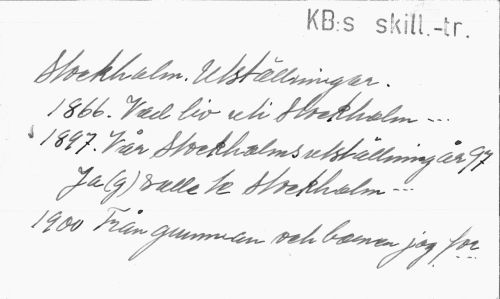 KB:s skill.-tr.
Stockholm. Utställningar.
1866. Vad liv uti Stockholm ---
1897. Vår Stockholmsutställning år 97
Ja(g) skulle te Stockholm ---
1900 Från gumman och barnen jag for